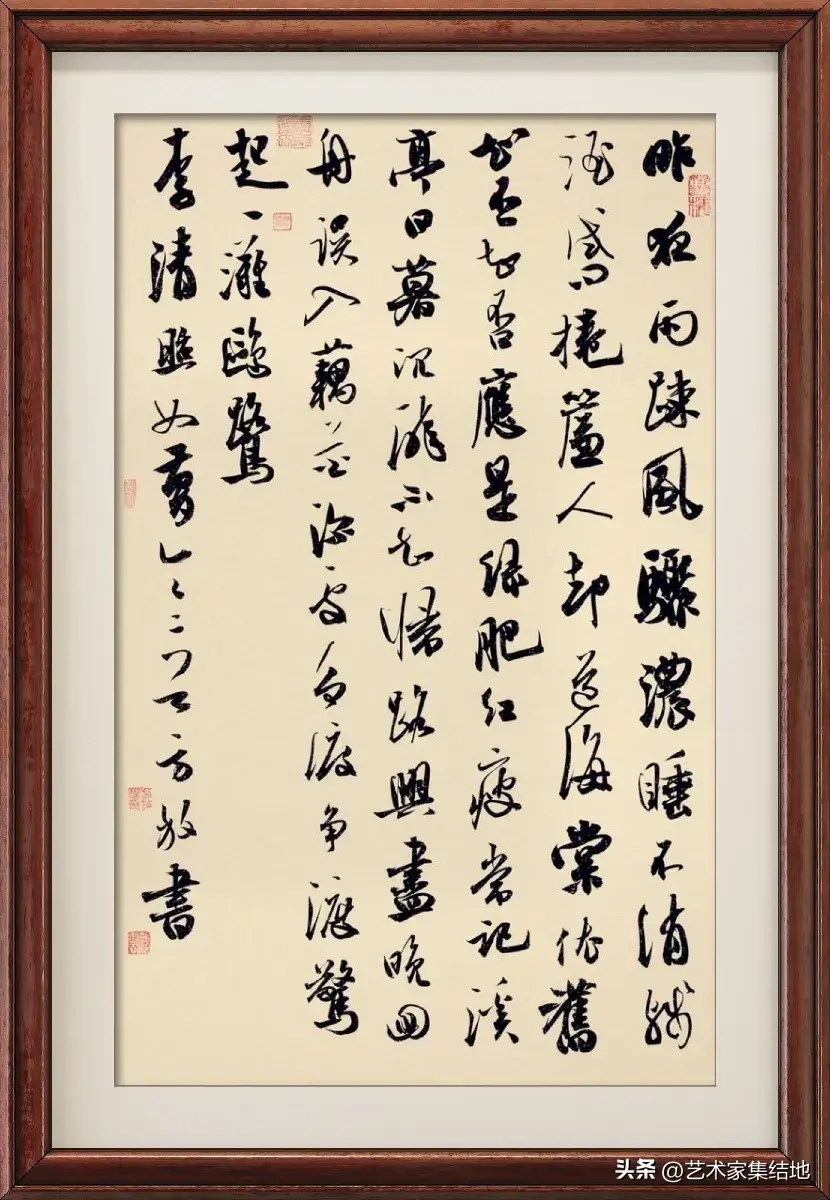 昨夜雨疎風驟濃睡不消殘
酒試問捲簾人却道海棠依舊
知否知否應是綠肥紅瘦常記溪
亭日暮沉醉不知歸路興盡晚回
舟誤入藕花深處爭渡爭渡驚
起一灘鷗鷺
李清照如夢令二方放書
头条 @艺术家集结地